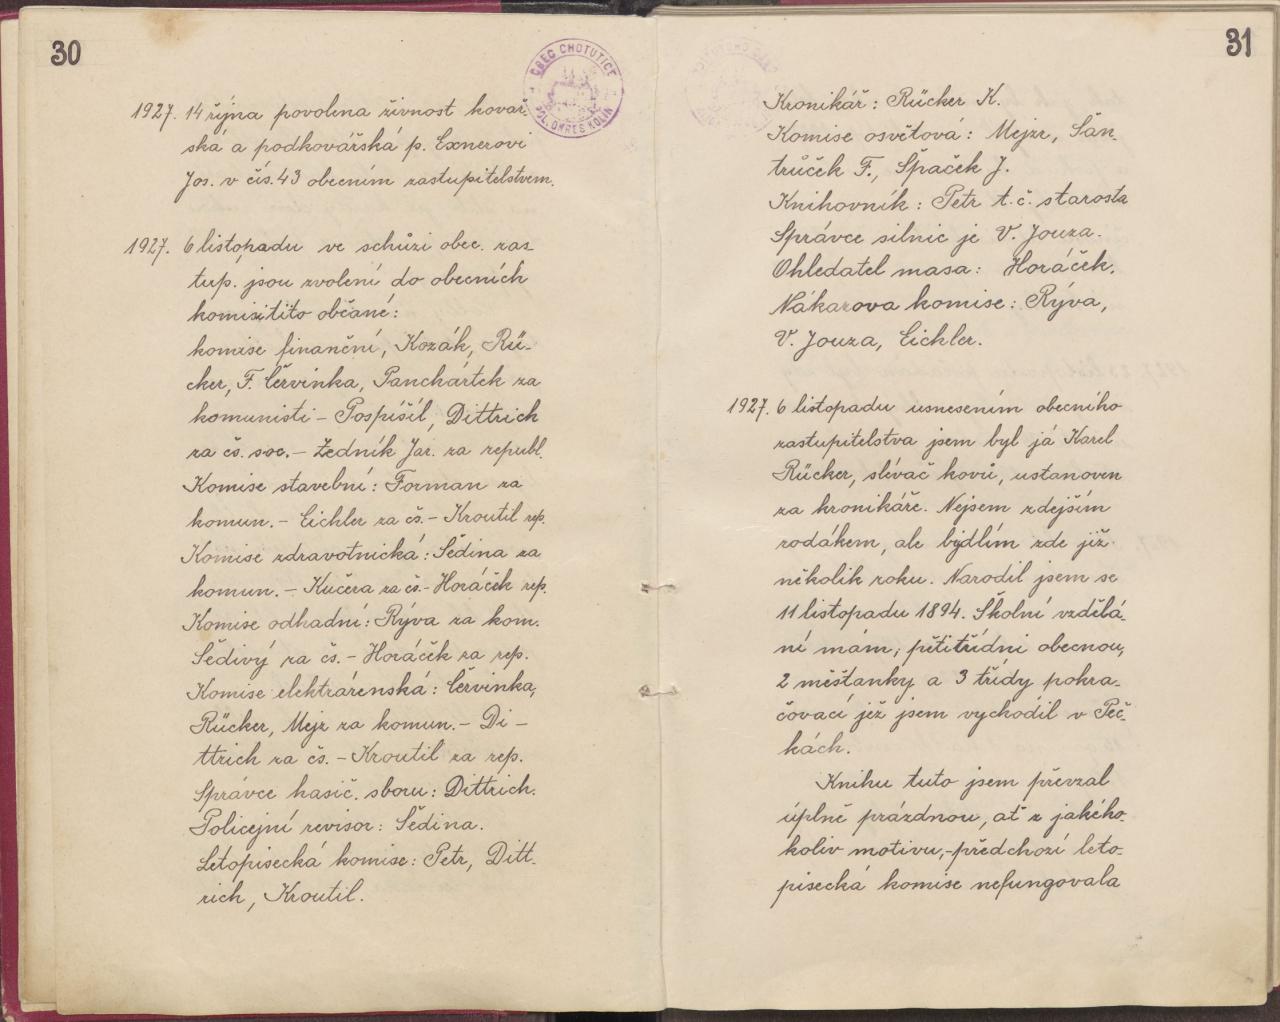 30
OBEC CHOTUTICE
POL. OKRES KOLÍN
1927. 14 října povolena živnost kovář
ská a podkovářská p. Exnerovi
Jos. v čís. 43 obecním zastupitelstvem.
1927. 6 listopadu ve schůzi obec. zas-
tup. jsou zvoleni do obecních
komisí tito občané:
komise finanční, Kozák, Rü-
cker, F. Červinka, Panchártek za
komunisti - Pospíšil, Dittrich
za čs. soc. - Žedník Jar. za republ.
Komise stavební: Forman za
komun. - Eichler za čs. - Kroutil rep.
Komise zdravotnická: Šedina za
komun. - Kučera za čs. - Horáček rep.
Komise odhadní: Rýva za kom.
Šedivý za čs. - Horáček za rep.
Komise elektrárenská: Červinka,
Rücker, Mejzr za komun. - Di-
ttrich za čs. - Kroutil za rep.
Správce hasič. sboru: Dittrich.
Policejní revisor: Šedina.
Letopisecká komise: Petr, Ditt-
rich, Kroutil.
31
Kronikář: Rücker K.
Komise osvětová: Mejzr, Šan-
trůček F., Špaček J.
Knihovník: Petr t. č. starosta
Správce silnic je V. Jouza.
Ohledatel masa: Horáček.
Nákazova komise: Rýva,
V. Jouza, Eichler.
1927. 6 listopadu usnesením obecního
zastupitelstva jsem byl já Karel
Rücker, slévač kovů, ustanoven
za kronikáře. Nejsem zdejším
rodákem, ale bydlím zde již
několik roku. Narodil jsem se
11 listopadu 1894. Školní vzdělá-
ní mám, pětitřídní obecnou,
2 měšťanky a 3 třídy pokra-
čovací jež jsem vychodil v Peč-
kách.
Knihu tuto jsem převzal
úplně prázdnou, ať z jakého-
koliv motivu, - předchozí leto-
pisecká komise nefungovala